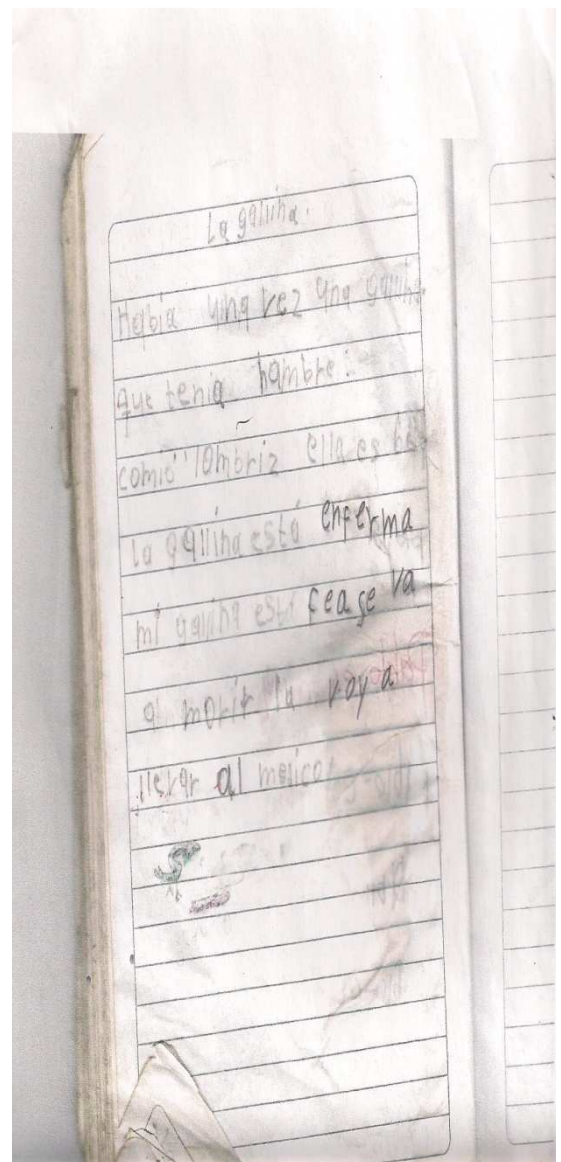 La gallina.
Había una vez una gallina
que tenia hambre.
comió lombriz ella
la gallina está enferma
mi gallina está fea se va
a morir la voy a
llevar al medico